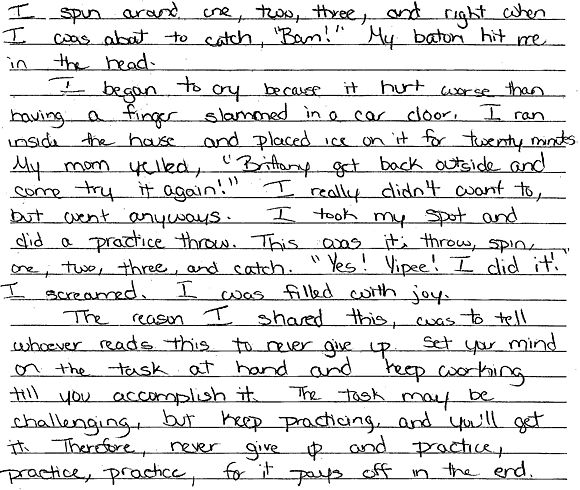 I spun around one, two, three, and right when
I was about to catch, "Bam!" My baton hit me
in the head.
I began to cry because it hurt worse than
having a finger slammed in a car door. I ran
inside the house and placed ice on it for twenty minuts.
My mom yelled, "Brittany get back outside and
come try it again!" I really didn't want to,
but went anyways. I took my spot and
did a practice throw. This was it; throw, spin,
one, two, three, and catch. "Yes! Yipee! I did it!"
I screamed. I was filled with joy.
The reason I shared this, was to tell
whoever reads this to never give up. Set your mind
on the task at hand and keep working
till you accomplish it. The task may be
challenging, but keep practicing, and you'll get
it. Therefore, never give up and practice,
practice, practice, for it pays off in the end.